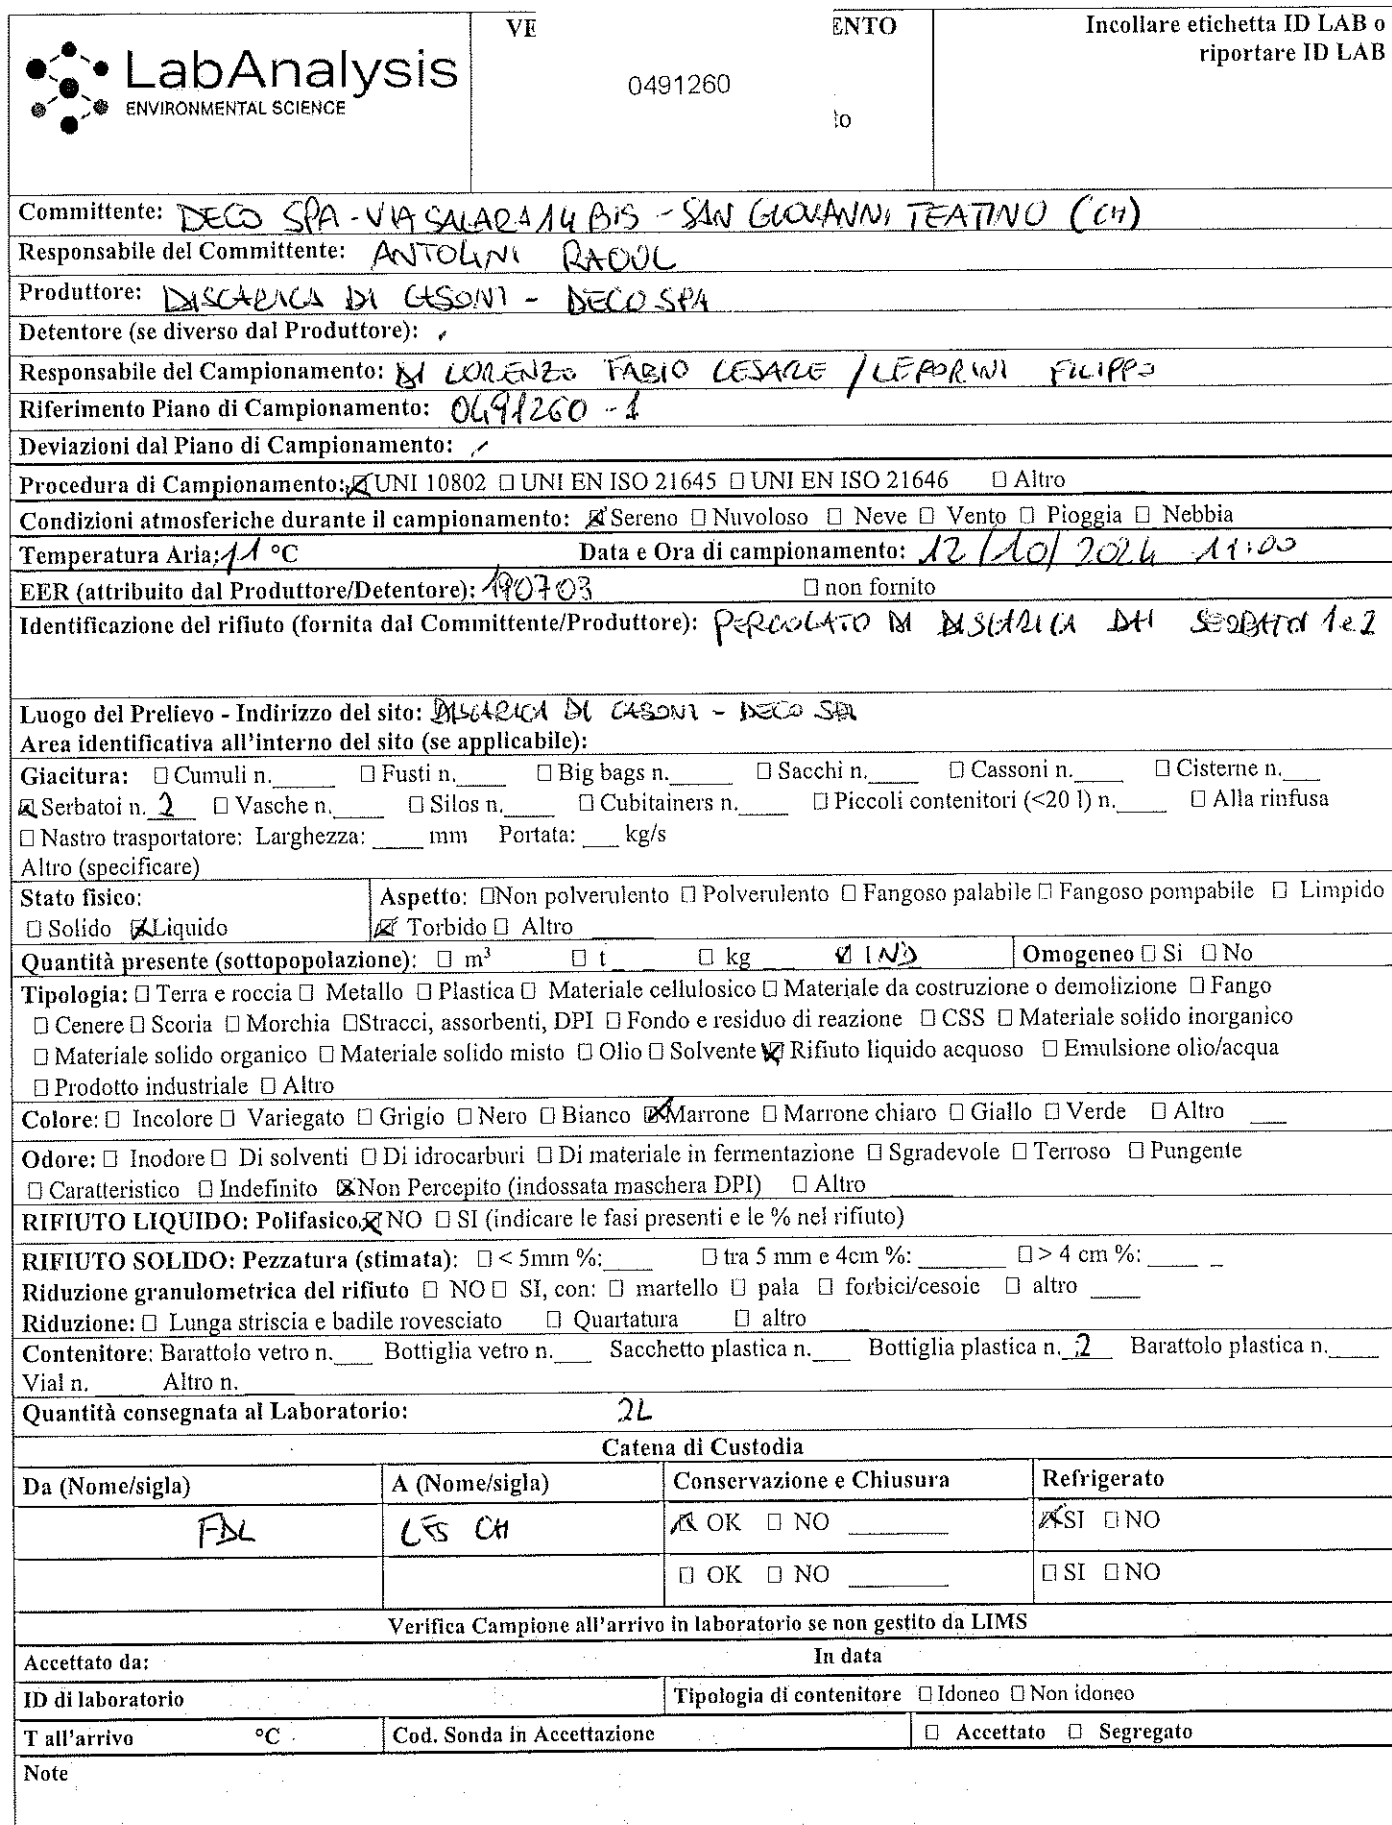 LabAnalysis
ENVIRONMENTAL SCIENCE
VE
ENTO
0491260
to
Incollare etichetta ID LAB o
riportare ID LAB
Committente: DECO SPA - VIA SALARA 14 BIS - SAN GIOVANNI TEATINO (CH)
Responsabile del Committente: ANTOLINI RAOUL
Produttore: DISCARICA DI CASONI - DECO SPA
Detentore (se diverso dal Produttore): ,
Responsabile del Campionamento: DI LORENZO FABIO CESARE / LEPORINI FILIPPO
Riferimento Piano di Campionamento: 0491260 - 1
Deviazioni dal Piano di Campionamento: ,
Procedura di Campionamento: ☒ UNI 10802 ☐ UNI EN ISO 21645 ☐ UNI EN ISO 21646 ☐ Altro
Condizioni atmosferiche durante il campionamento: ☒ Sereno ☐ Nuvoloso ☐ Neve ☐ Vento ☐ Pioggia ☐ Nebbia
Temperatura Aria: 11 °C Data e Ora di campionamento: 12/10/2024 11:00
EER (attribuito dal Produttore/Detentore): 190703 ☐ non fornito
Identificazione del rifiuto (fornita dal Committente/Produttore): PERCOLATO DI DISCARICA DAI SERBATOI 1 e 2
Luogo del Prelievo - Indirizzo del sito: DISCARICA DI CASONI - DECO SPA
Area identificativa all'interno del sito (se applicabile):
Giacitura: ☐ Cumuli n.____ ☐ Fusti n.____ ☐ Big bags n.____ ☐ Sacchi n.____ ☐ Cassoni n.____ ☐ Cisterne n.___
☒ Serbatoi n. 2 ☐ Vasche n.____ ☐ Silos n.____ ☐ Cubitainers n.____ ☐ Piccoli contenitori (<20 l) n.____ ☐ Alla rinfusa
☐ Nastro trasportatore: Larghezza: ____ mm Portata: ___ kg/s
Altro (specificare)
Stato fisico:
☐ Solido ☒ Liquido
Aspetto: ☐ Non polverulento ☐ Polverulento ☐ Fangoso palabile ☐ Fangoso pompabile ☐ Limpido
☒ Torbido ☐ Altro ____
Quantità presente (sottopopolazione): ☐ m³ ☐ t ___ ☐ kg ___ ☒ IND
Omogeneo ☐ Si ☐ No
Tipologia: ☐ Terra e roccia ☐ Metallo ☐ Plastica ☐ Materiale cellulosico ☐ Materiale da costruzione o demolizione ☐ Fango
☐ Cenere ☐ Scoria ☐ Morchia ☐ Stracci, assorbenti, DPI ☐ Fondo e residuo di reazione ☐ CSS ☐ Materiale solido inorganico
☐ Materiale solido organico ☐ Materiale solido misto ☐ Olio ☐ Solvente ☒ Rifiuto liquido acquoso ☐ Emulsione olio/acqua
☐ Prodotto industriale ☐ Altro
Colore: ☐ Incolore ☐ Variegato ☐ Grigio ☐ Nero ☐ Bianco ☒ Marrone ☐ Marrone chiaro ☐ Giallo ☐ Verde ☐ Altro ___
Odore: ☐ Inodore ☐ Di solventi ☐ Di idrocarburi ☐ Di materiale in fermentazione ☐ Sgradevole ☐ Terroso ☐ Pungente
☐ Caratteristico ☐ Indefinito ☒ Non Percepito (indossata maschera DPI) ☐ Altro ____
RIFIUTO LIQUIDO: Polifasico ☒ NO ☐ SI (indicare le fasi presenti e le % nel rifiuto)
RIFIUTO SOLIDO: Pezzatura (stimata): ☐ < 5mm %:____ ☐ tra 5 mm e 4cm %:____ ☐ > 4 cm %: ____ _
Riduzione granulometrica del rifiuto ☐ NO ☐ SI, con: ☐ martello ☐ pala ☐ forbici/cesoie ☐ altro ____
Riduzione: ☐ Lunga striscia e badile rovesciato ☐ Quartatura ☐ altro ____
Contenitore: Barattolo vetro n.___ Bottiglia vetro n.___ Sacchetto plastica n.___ Bottiglia plastica n. 2 Barattolo plastica n.____
Vial n. ____ Altro n. ____
Quantità consegnata al Laboratorio: 2L
Catena di Custodia
Da (Nome/sigla) A (Nome/sigla) Conservazione e Chiusura Refrigerato
FDL CH ☒ OK ☐ NO ____ ☒ SI ☐ NO
☐ OK ☐ NO ____ ☐ SI ☐ NO
Verifica Campione all'arrivo in laboratorio se non gestito da LIMS
Accettato da: In data
ID di laboratorio Tipologia di contenitore ☐ Idoneo ☐ Non idoneo
T all'arrivo °C Cod. Sonda in Accettazione ☐ Accettato ☐ Segregato
Note